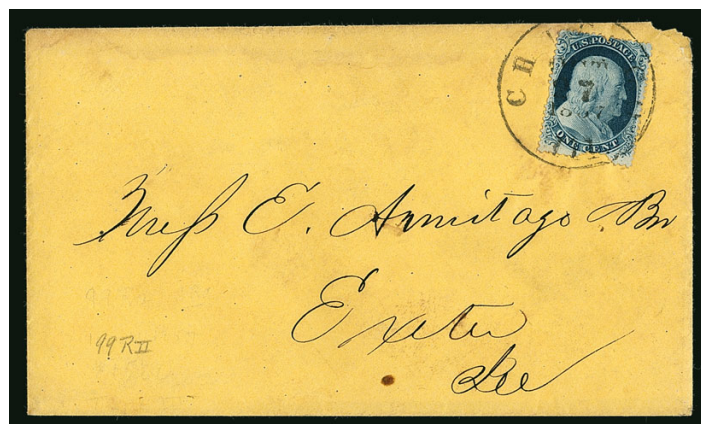 U.S. POSTAGE
7
ONE CENT
Miss E. Armitage Bn
Exeter
99RII